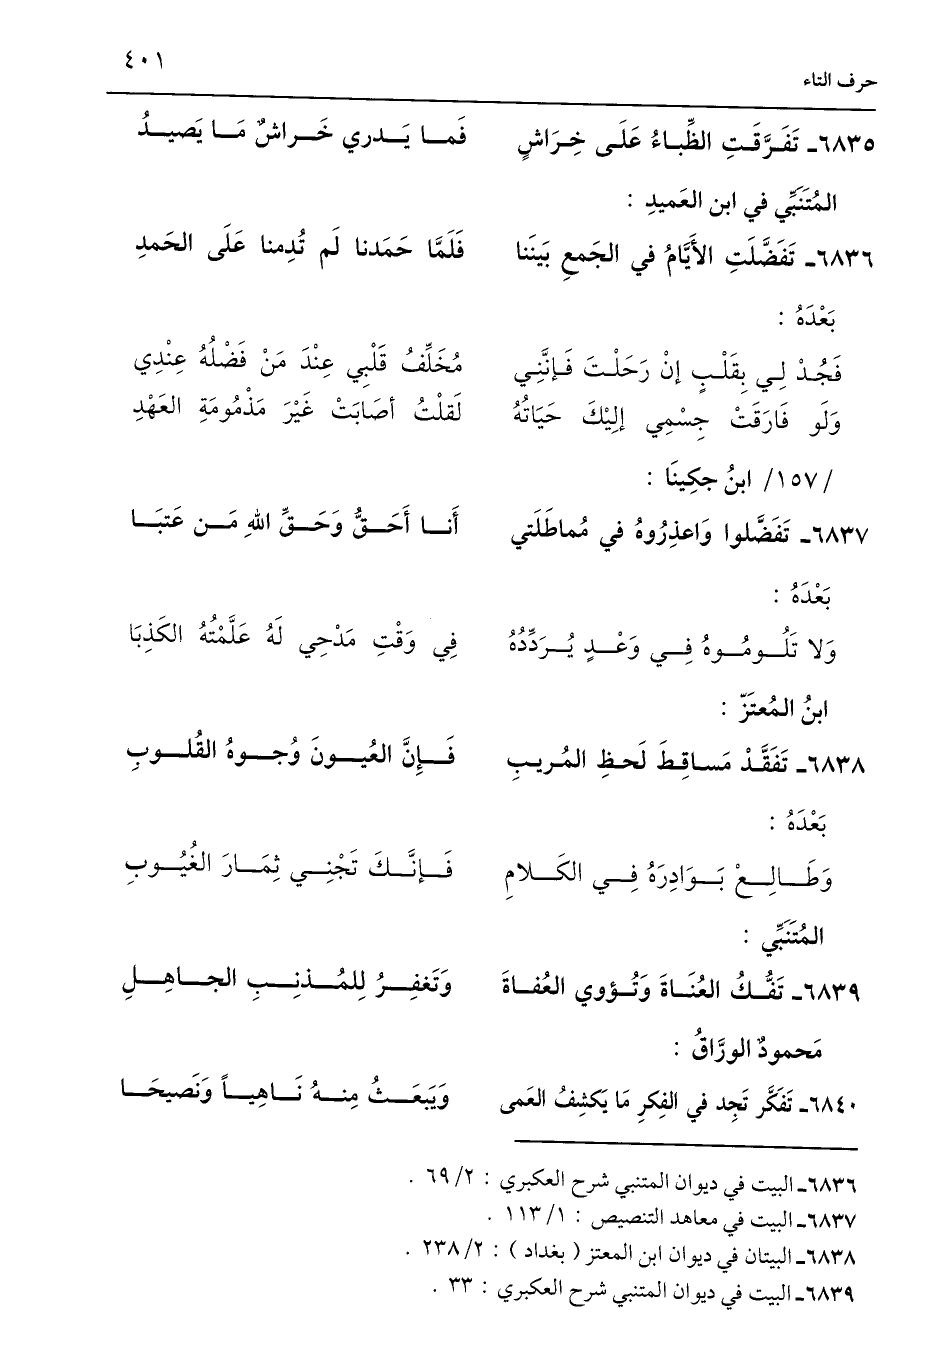 ٤٠١
حرف التاء
٦٨٣٥ـ تَفَرَّقَتِ الظِّبـاءُ عَلَـى خِرَاشٍ فَمـا يَـدري خَـراشٌ مَـا يَصيـدُ
المُتَنَبِّي في ابن العَميدِ :
٦٨٣٦ـ تَفَضَّلَتِ الأَيَّامُ في الجَمعِ بَيَننَا فَلَمَّا حَمَدنا لَم تُدِمنا عَلَى الحَمدِ
بَعْدَهُ :
فَجُدْ لِي بِقَلْبٍ إنْ رَحَلْتَ فَإنَّنِي مُخَلِّفُ قَلْبِي عِنْدَ مَنْ فَضْلُهُ عِنْدِي
وَلَو فَارَقَتْ جِسْمِي إليْكَ حَيَاتُهُ لَقلْتُ أصَابَتْ غَيْرَ مَذْمُومَةِ العَهْدِ
/١٥٧/ ابنُ جكِينَا :
٦٨٣٧ـ تَفَضَّلوا وَاعذِرُوهُ في مُماطَلَتي أَنـا أَحَـقُّ وَحَـقِّ اللهِ مَـن عَتبَـا
بَعْدَهُ :
وَلا تَلُـومُـوهُ فِـي وَعْـدٍ يُـرَدِّدُهُ فِي وَقْتِ مَدْحِي لَهُ عَلَّمْتُهُ الكَذِبَا
ابنُ المُعتَزّ :
٦٨٣٨ـ تَفَقَّدْ مَساقِطَ لَحظِ المُريبِ فَـإنَّ العُيـونَ وُجـوهُ القُلـوبِ
بَعْدَهُ :
وَطَـالِـعْ بَـوَادِرَهُ فِـي الكَـلامِ فَـإنَّـكَ تَجْنِـي ثِمَـارَ الغُيُـوبِ
المُتَنَبِّي :
٦٨٣٩ـ تَفُـكُ العُنَـاةَ وَتُـؤوي العُفـاةَ وَتَغفِـرُ لِلمُـذنِـبِ الجـاهِـلِ
مَحمودٌ الورَّاقُ :
٦٨٤٠ـ تَفَكَّر تَجِد في الفِكرِ مَا يَكشِفُ العَمى وَيَبعَـثُ مِنـهُ نَـاهِيـاً وَنَصيحَـا
٦٨٣٦ـ البيت في ديوان المتنبي شرح العكبري : ٢/ ٦٩ .
٦٨٣٧ـ البيت في معاهد التنصيص : ١/ ١١٣ .
٦٨٣٨ـ البيتان في ديوان ابن المعتز ( بغداد ) : ٢/ ٢٣٨ .
٦٨٣٩ـ البيت في ديوان المتنبي شرح العكبري : ٣٣ .